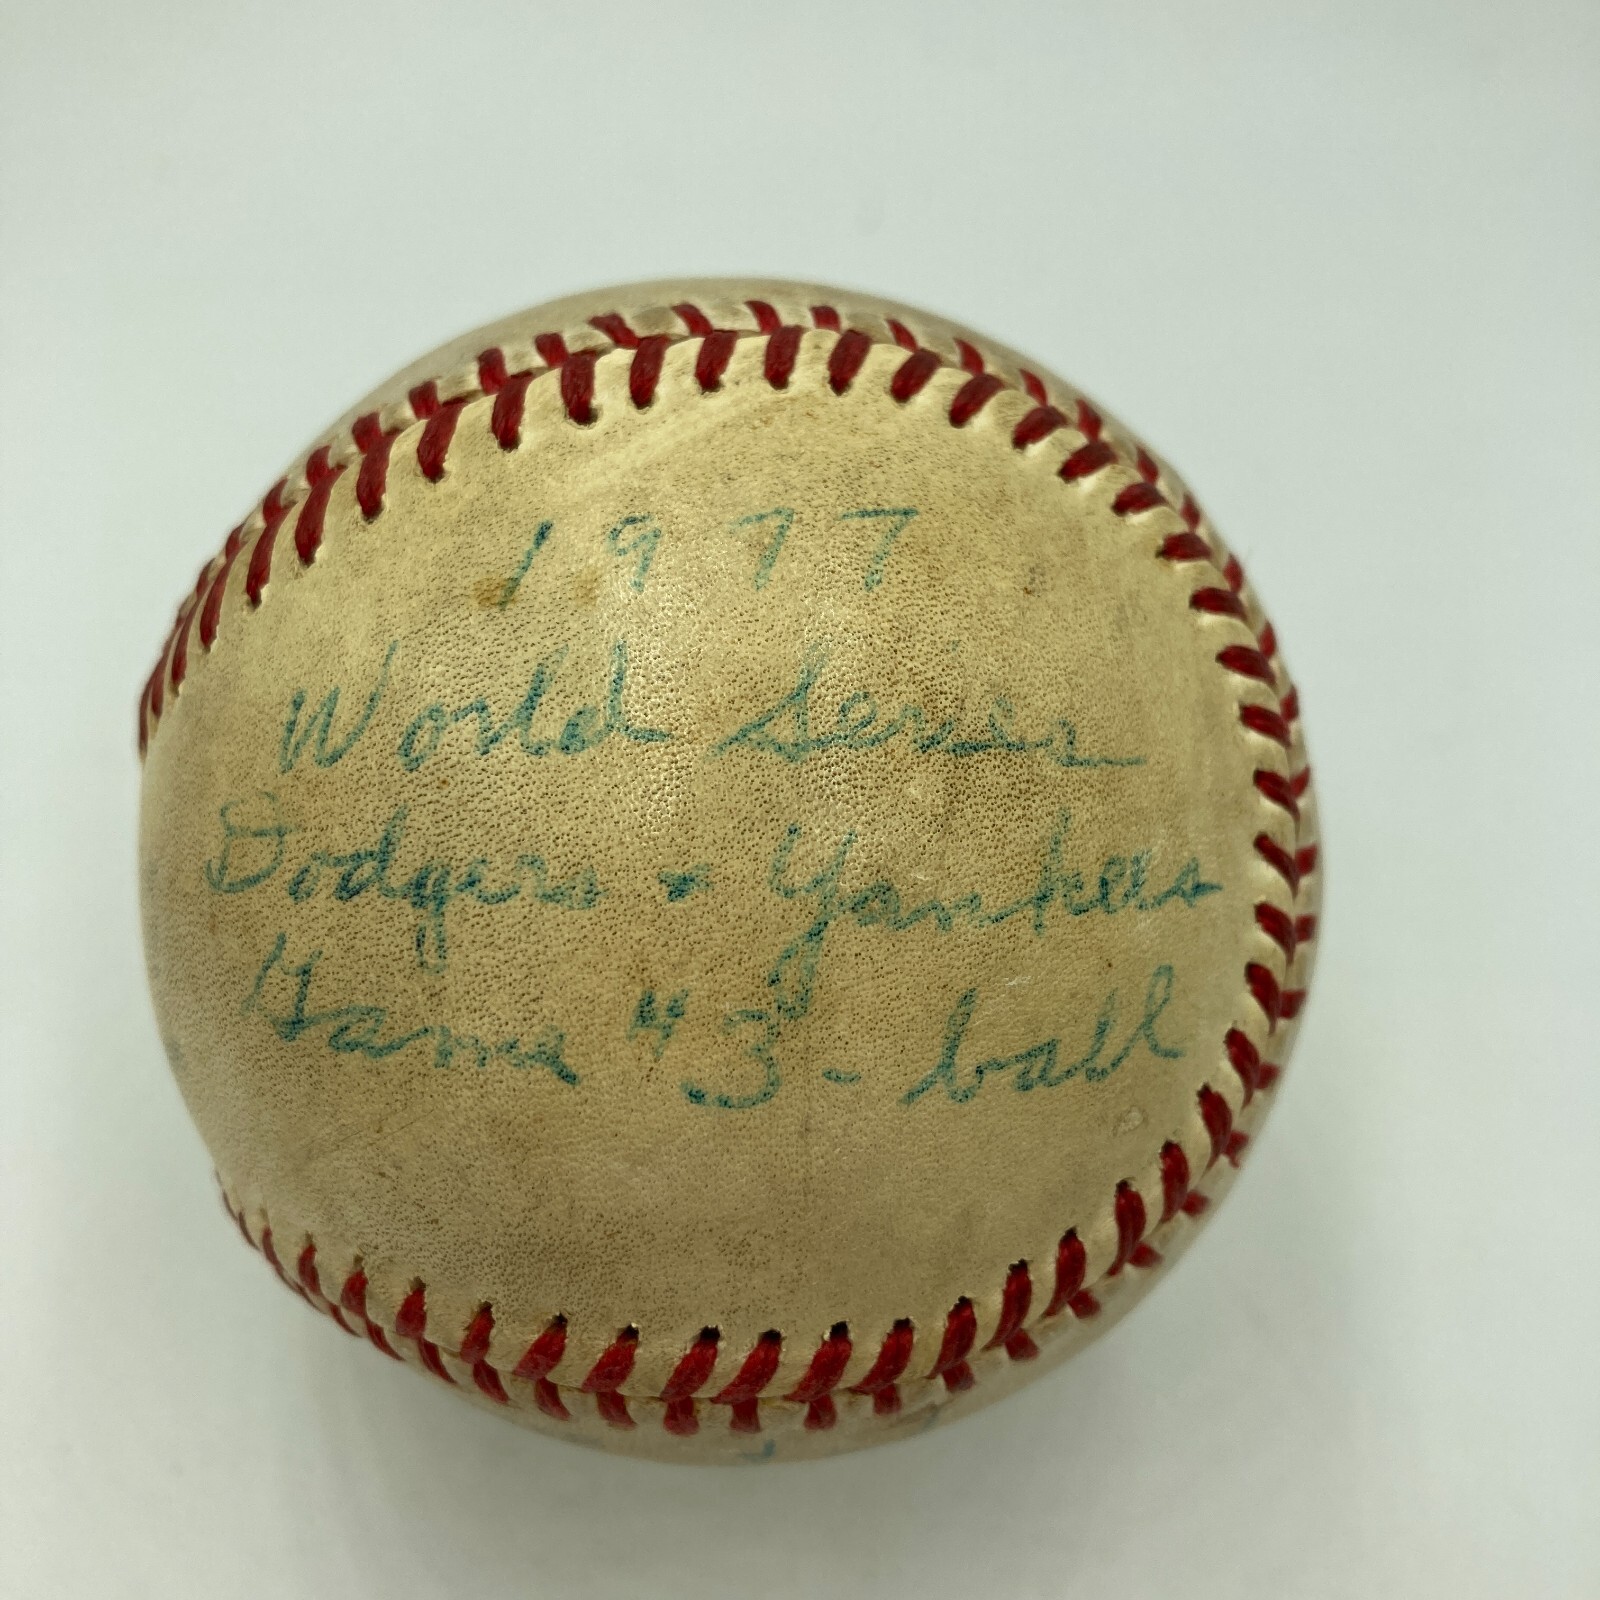 1977
World Series
Dodgers - Yankees
Game "3 - ball